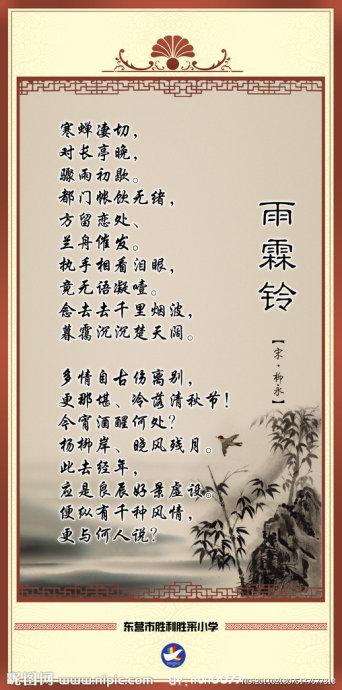 雨霖铃
【宋·柳永】
寒蝉凄切，
对长亭晚，
骤雨初歇。
都门帐饮无绪，
方留恋处、
兰舟催发。
执手相看泪眼，
竟无语凝噎。
念去去千里烟波，
暮霭沉沉楚天阔。
多情自古伤离别，
更那堪、冷落清秋节！
今宵酒醒何处？
杨柳岸、晓风残月。
此去经年，
应是良辰好景虚设。
便纵有千种风情，
更与何人说？
东营市胜利胜采小学
昵图网 www.nipic.com